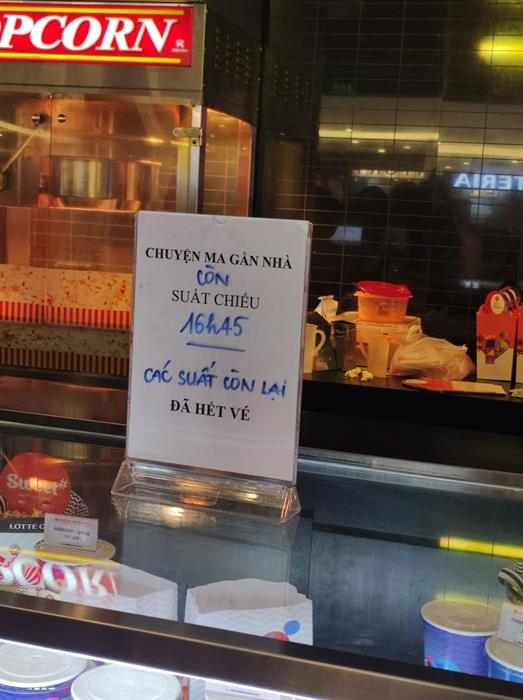 POPCORN
TERIA
CHUYỆN MA GẦN NHÀ
CÒN
SUẤT CHIẾU
16h45
CÁC SUẤT CÒN LẠI
ĐÃ HẾT VÉ
Sweet
LOTTE C